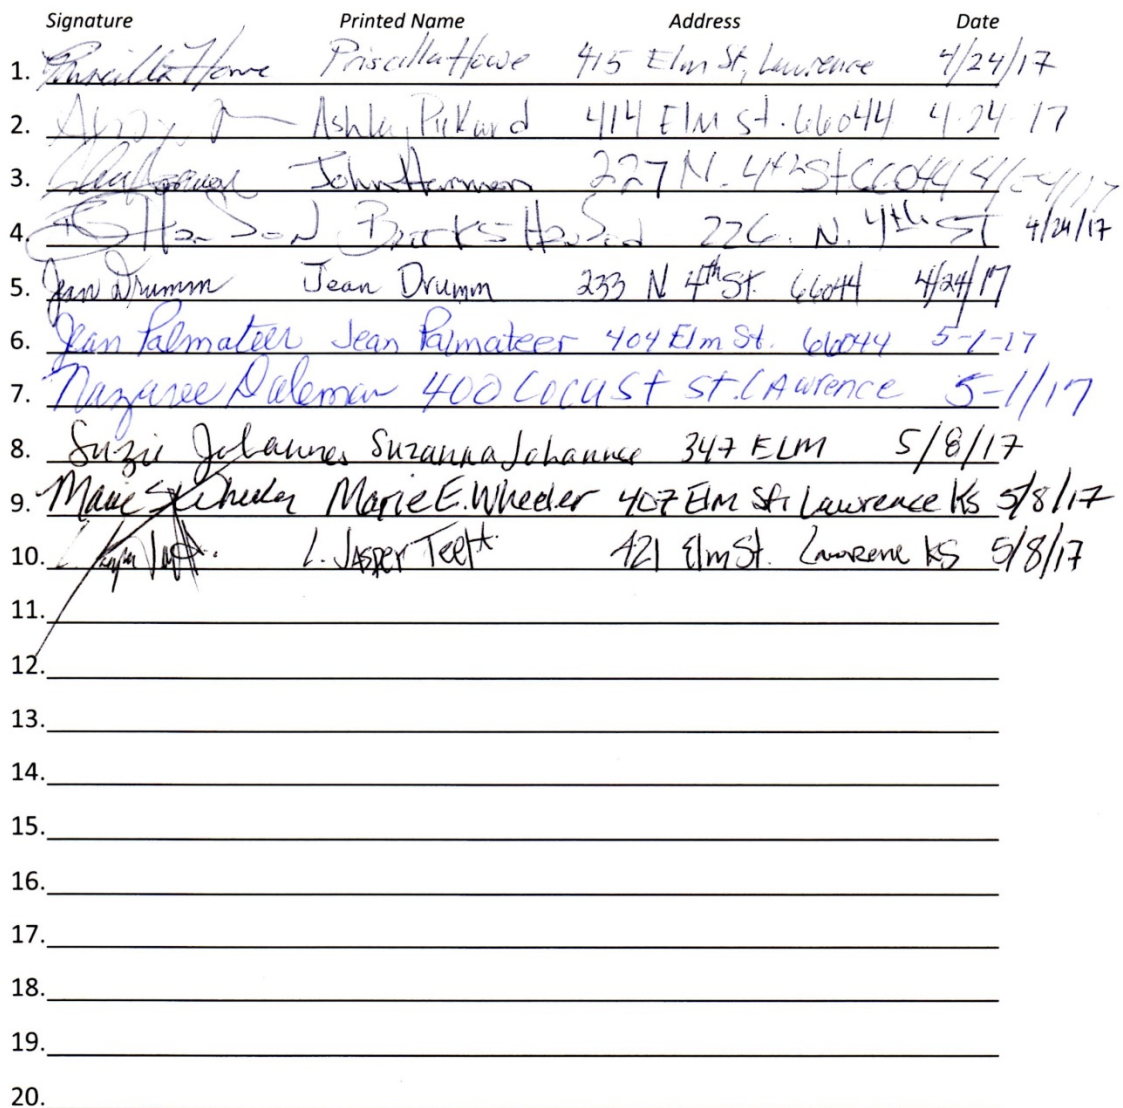 Signature Printed Name Address Date
1. Priscilla Howe Priscilla Howe 415 Elm St, Lawrence 4/24/17
2. Ashley Pickard 414 Elm St. 66044 4-24-17
3. John Harmon 227 N. 4th St 66044 4/24/17
4. Hanson Brooks Hanson 226 N. 4th St 4/24/17
5. Jean Drumm Jean Drumm 233 N 4th St. 66044 4/24/17
6. Jean Palmateer Jean Palmateer 404 Elm St. 66044 5-1-17
7. 400 Locust St. Lawrence 5-1/17
8. Suzie Johannes Suzanna Johannes 347 ELM 5/8/17
9. Marie E. Wheeler Marie E. Wheeler 407 Elm St. Lawrence Ks 5/8/17
10. L. Jasper 421 Elm St. Lawrence KS 5/8/17
11.
12.
13.
14.
15.
16.
17.
18.
19.
20.